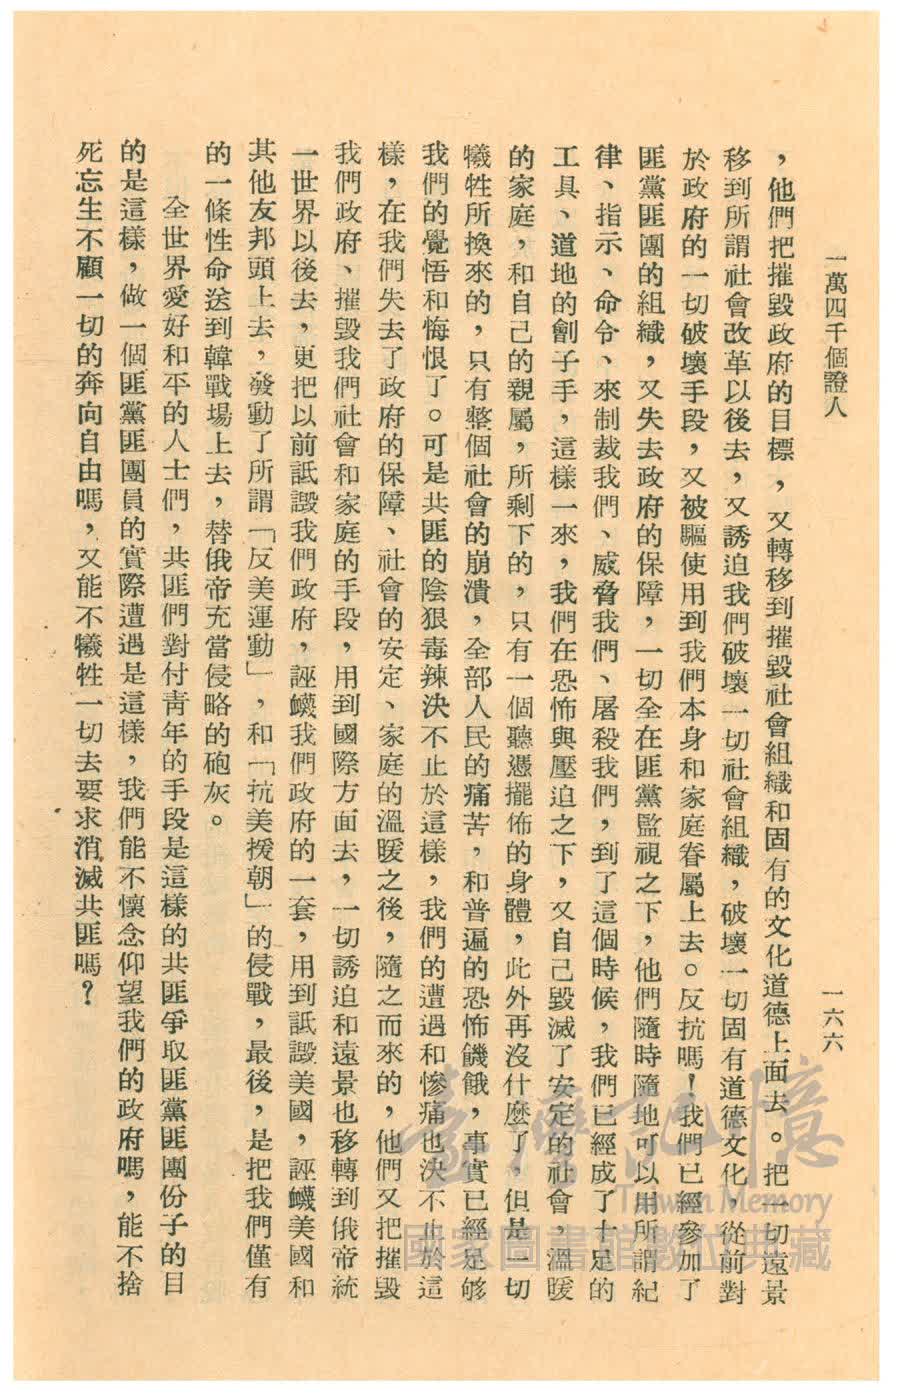 一萬四千個證人
一六六
，他們把摧毀政府的目標，又轉移到摧毀社會組織和固有的文化道德上面去。把一切遠景
移到所謂社會改革以後去，又誘迫我們破壞一切社會組織，破壞一切固有道德文化，從前對
於政府的一切破壞手段，又被驅使用到我們本身和家庭眷屬上去。反抗嗎！我們已經參加了
匪黨匪團的組織，又失去政府的保障，一切全在匪黨監視之下，他們隨時隨地可以用所謂紀
律、指示、命令、來制裁我們、威脅我們、屠殺我們，到了這個時候，我們已經成了十足的
工具、道地的劊子手，這樣一來，我們在恐怖與壓迫之下，又自己毀滅了安定的社會，溫暖
的家庭，和自己的親屬，所剩下的，只有一個聽憑擺佈的身體，此外再沒什麼了，但是一切
犧牲所換來的，只有整個社會的崩潰，全部人民的痛苦，和普遍的恐怖饑餓，事實已經足够
我們的覺悟和悔恨了。可是共匪的陰狠毒辣決不止於這樣，我們的遭遇和慘痛也決不止於這
樣，在我們失去了政府的保障、社會的安定、家庭的溫暖之後，隨之而來的，他們又把摧毀
我們政府、摧毀我們社會和家庭的手段，用到國際方面去，一切誘迫和遠景也移轉到俄帝統
一世界以後去，更把以前詆譭我們政府，誣衊我們政府的一套，用到詆譭美國，誣衊美國和
其他友邦頭上去，發動了所謂「反美運動」，和「抗美援朝」的侵戰，最後，是把我們僅有
的一條性命送到韓戰場上去，替俄帝充當侵略的砲灰。
全世界愛好和平的人士們，共匪們對付青年的手段是這樣的共匪爭取匪黨匪團份子的目
的是這樣，做一個匪黨匪團員的實際遭遇是這樣，我們能不懷念仰望我們的政府嗎，能不捨
死忘生不顧一切的奔向自由嗎，又能不犧牲一切去要求消滅共匪嗎？
臺灣記憶
Taiwan Memory
國家圖書館數位典藏